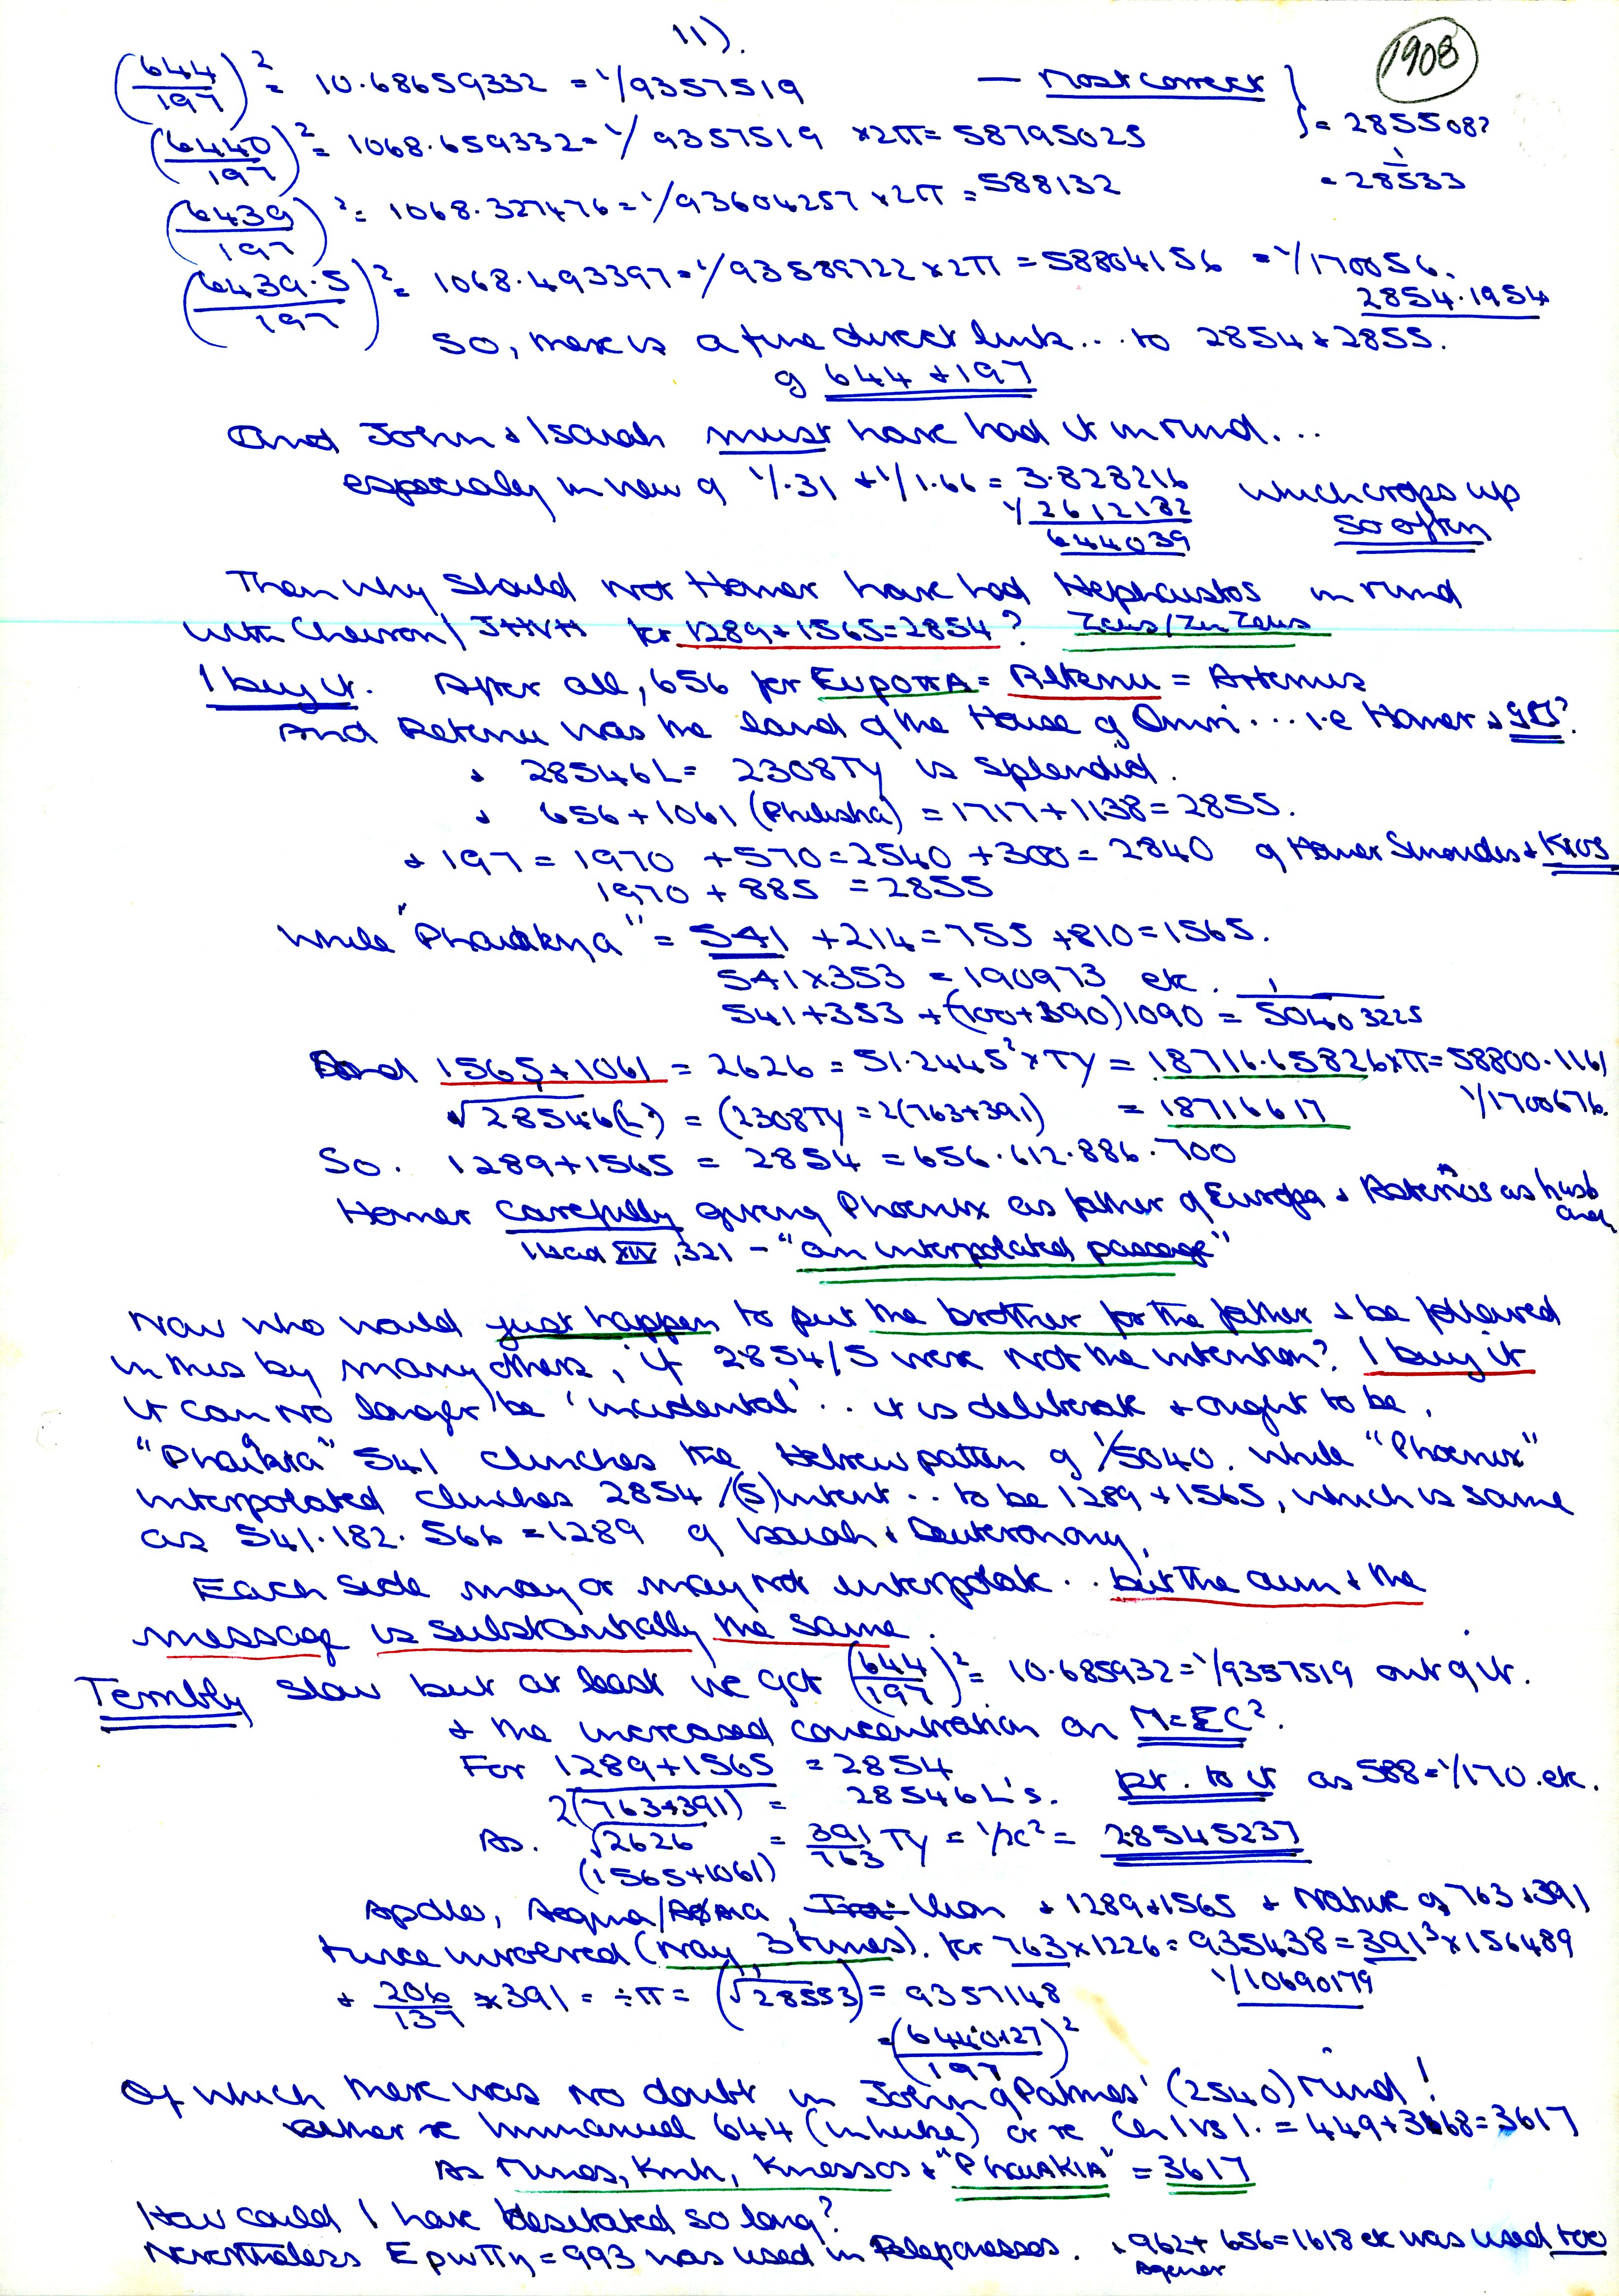 11).
1908
(644/197)² = 10.68659332 = 1/9357519 — Most correct
= 2855087
(6440/197)² = 1068.659332 = 1/9357519 ×2π = 58795025
= 1/28533
(6439/197)² = 1068.327476 = 1/93604257 ×2π = 588132
(6439.5/197)² = 1068.493397 = 1/93589722 ×2π = 58804156 = 1/170056.
2854.1954
So, there is a fine direct link... to 2854 + 2855.
of 644 + 197
And John + Isaiah must have had it in mind...
especially in view of 1/.31 + 1/1.66 = 3.828216 which crops up
1/2612182 so often
644039
Then why should not Homer have had Hephaistos in mind
with Cheiron/ JHVH for 1289+1565=2854? Zeus/Zn Zeus
I buy it. After all, 656 for ΕυροπΑ = Retenu = Artemis
And Retenu was the land of the House of Omri... i.e Homer +
+ 28546L = 2308Ty is splendid.
+ 656+1061 (Philistia) = 1717+1138 = 2855.
+ 197 = 1970 +570=2540 +300= 2840 of Homer Simonides + Kxos
1970 + 885 = 2855
While "Phaiakya" = 541 +214=755 +810=1565.
541×353 = 190973 etc.
541+353+(700+390)1090 = 1/50403225
And 1565+1061 = 2626 = 51.2445² × Ty = 18716.65826×π=58800.1161
√28546(L) = (2308Ty = 2(763+391) = 18716617 1/1700676.
So. 1289+1565 = 2854 = 656.612.886.700
Homer carefully giving Phoenix as father of Europa + Asterios as husb
and
Iliad XIV, 321 – "an interpolated passage"
Now who would just happen to put the brother for the father + be followed
in this by many others, if 2854/5 were not the intention? I buy it
it can no longer be 'incidental'.. it is deliberate + ought to be.
"Phaikia" 541 clinches the Hebrew pattern of 1/5040. while "Phoenix"
interpolated clinches 2854/(5) intent.. to be 1289+1565, which is same
as 541.182.566 = 1289 of Isaiah + Deuteronomy.
Each side may or may not interpolate.. but the aim + the
message is substantially the same.
Terribly slow but at least we got (644/197)² = 10.685932 = 1/9357519 out of it.
+ the increased concentration on M=EC².
For 1289+1565 = 2854
2(763+391) = 28546L's. pt. to it as 588=1/170.etc.
As. √2626 = 391/763 Ty = 1/x² = 28545237
(1565+1061)
Apollo, Aegina/ , Ilion + 1289+1565 + Nature of 763+391
twice involved (nay 3 times). for 763×1226 = 935438 = 391³×156489
1/10690179
+ 206/137 ×391 = ÷π = (√28553) = 9357148
= (6440127/197)²
Of which there was no doubt in John of Patmos' (2540) mind!
Either re Immanuel 644 (in Luke) or re Ch 1 vs 1. = 449+3168=3617
As Minos, Kmh, Knossos + "PhaiAKIA" = 3617
How could I have hesitated so long?
Nevertheless Ευρωπη = 993 was used in . + 962+ 656=1618 etc was used too
Agenor